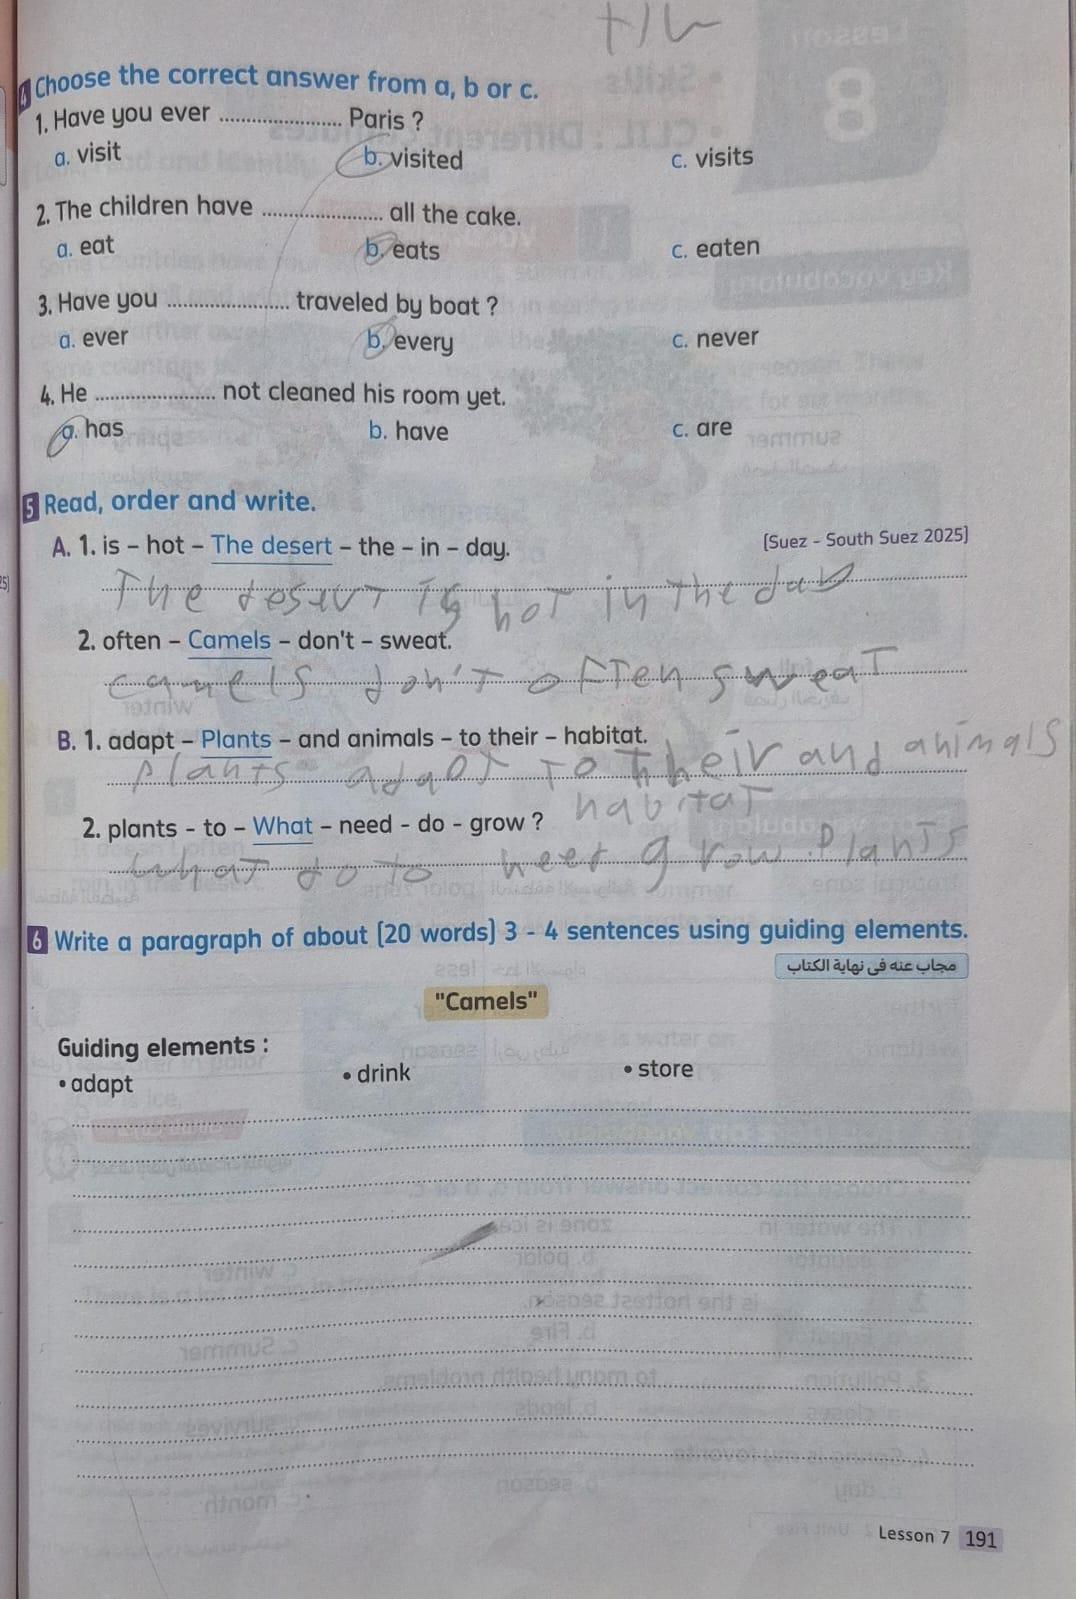 Lesson
8
4 Choose the correct answer from a, b or c.
1. Have you ever ...................... Paris ?
a. visit b. visited c. visits
2. The children have ...................... all the cake.
a. eat b. eats c. eaten
3. Have you ...................... traveled by boat ?
a. ever b. every c. never
4. He ...................... not cleaned his room yet.
a. has b. have c. are
5 Read, order and write.
A. 1. is – hot – The desert – the – in – day. (Suez - South Suez 2025)
The desert is hot in the day
2. often – Camels – don't – sweat.
camels don't often sweat
B. 1. adapt – Plants – and animals – to their – habitat.
plants adapt to their and animals
habitat
2. plants - to – What – need - do - grow ?
what do to need grow plants
6 Write a paragraph of about (20 words) 3 - 4 sentences using guiding elements.
مجاب عنه فى نهاية الكتاب
"Camels"
Guiding elements :
• adapt • drink • store
Lesson 7 191